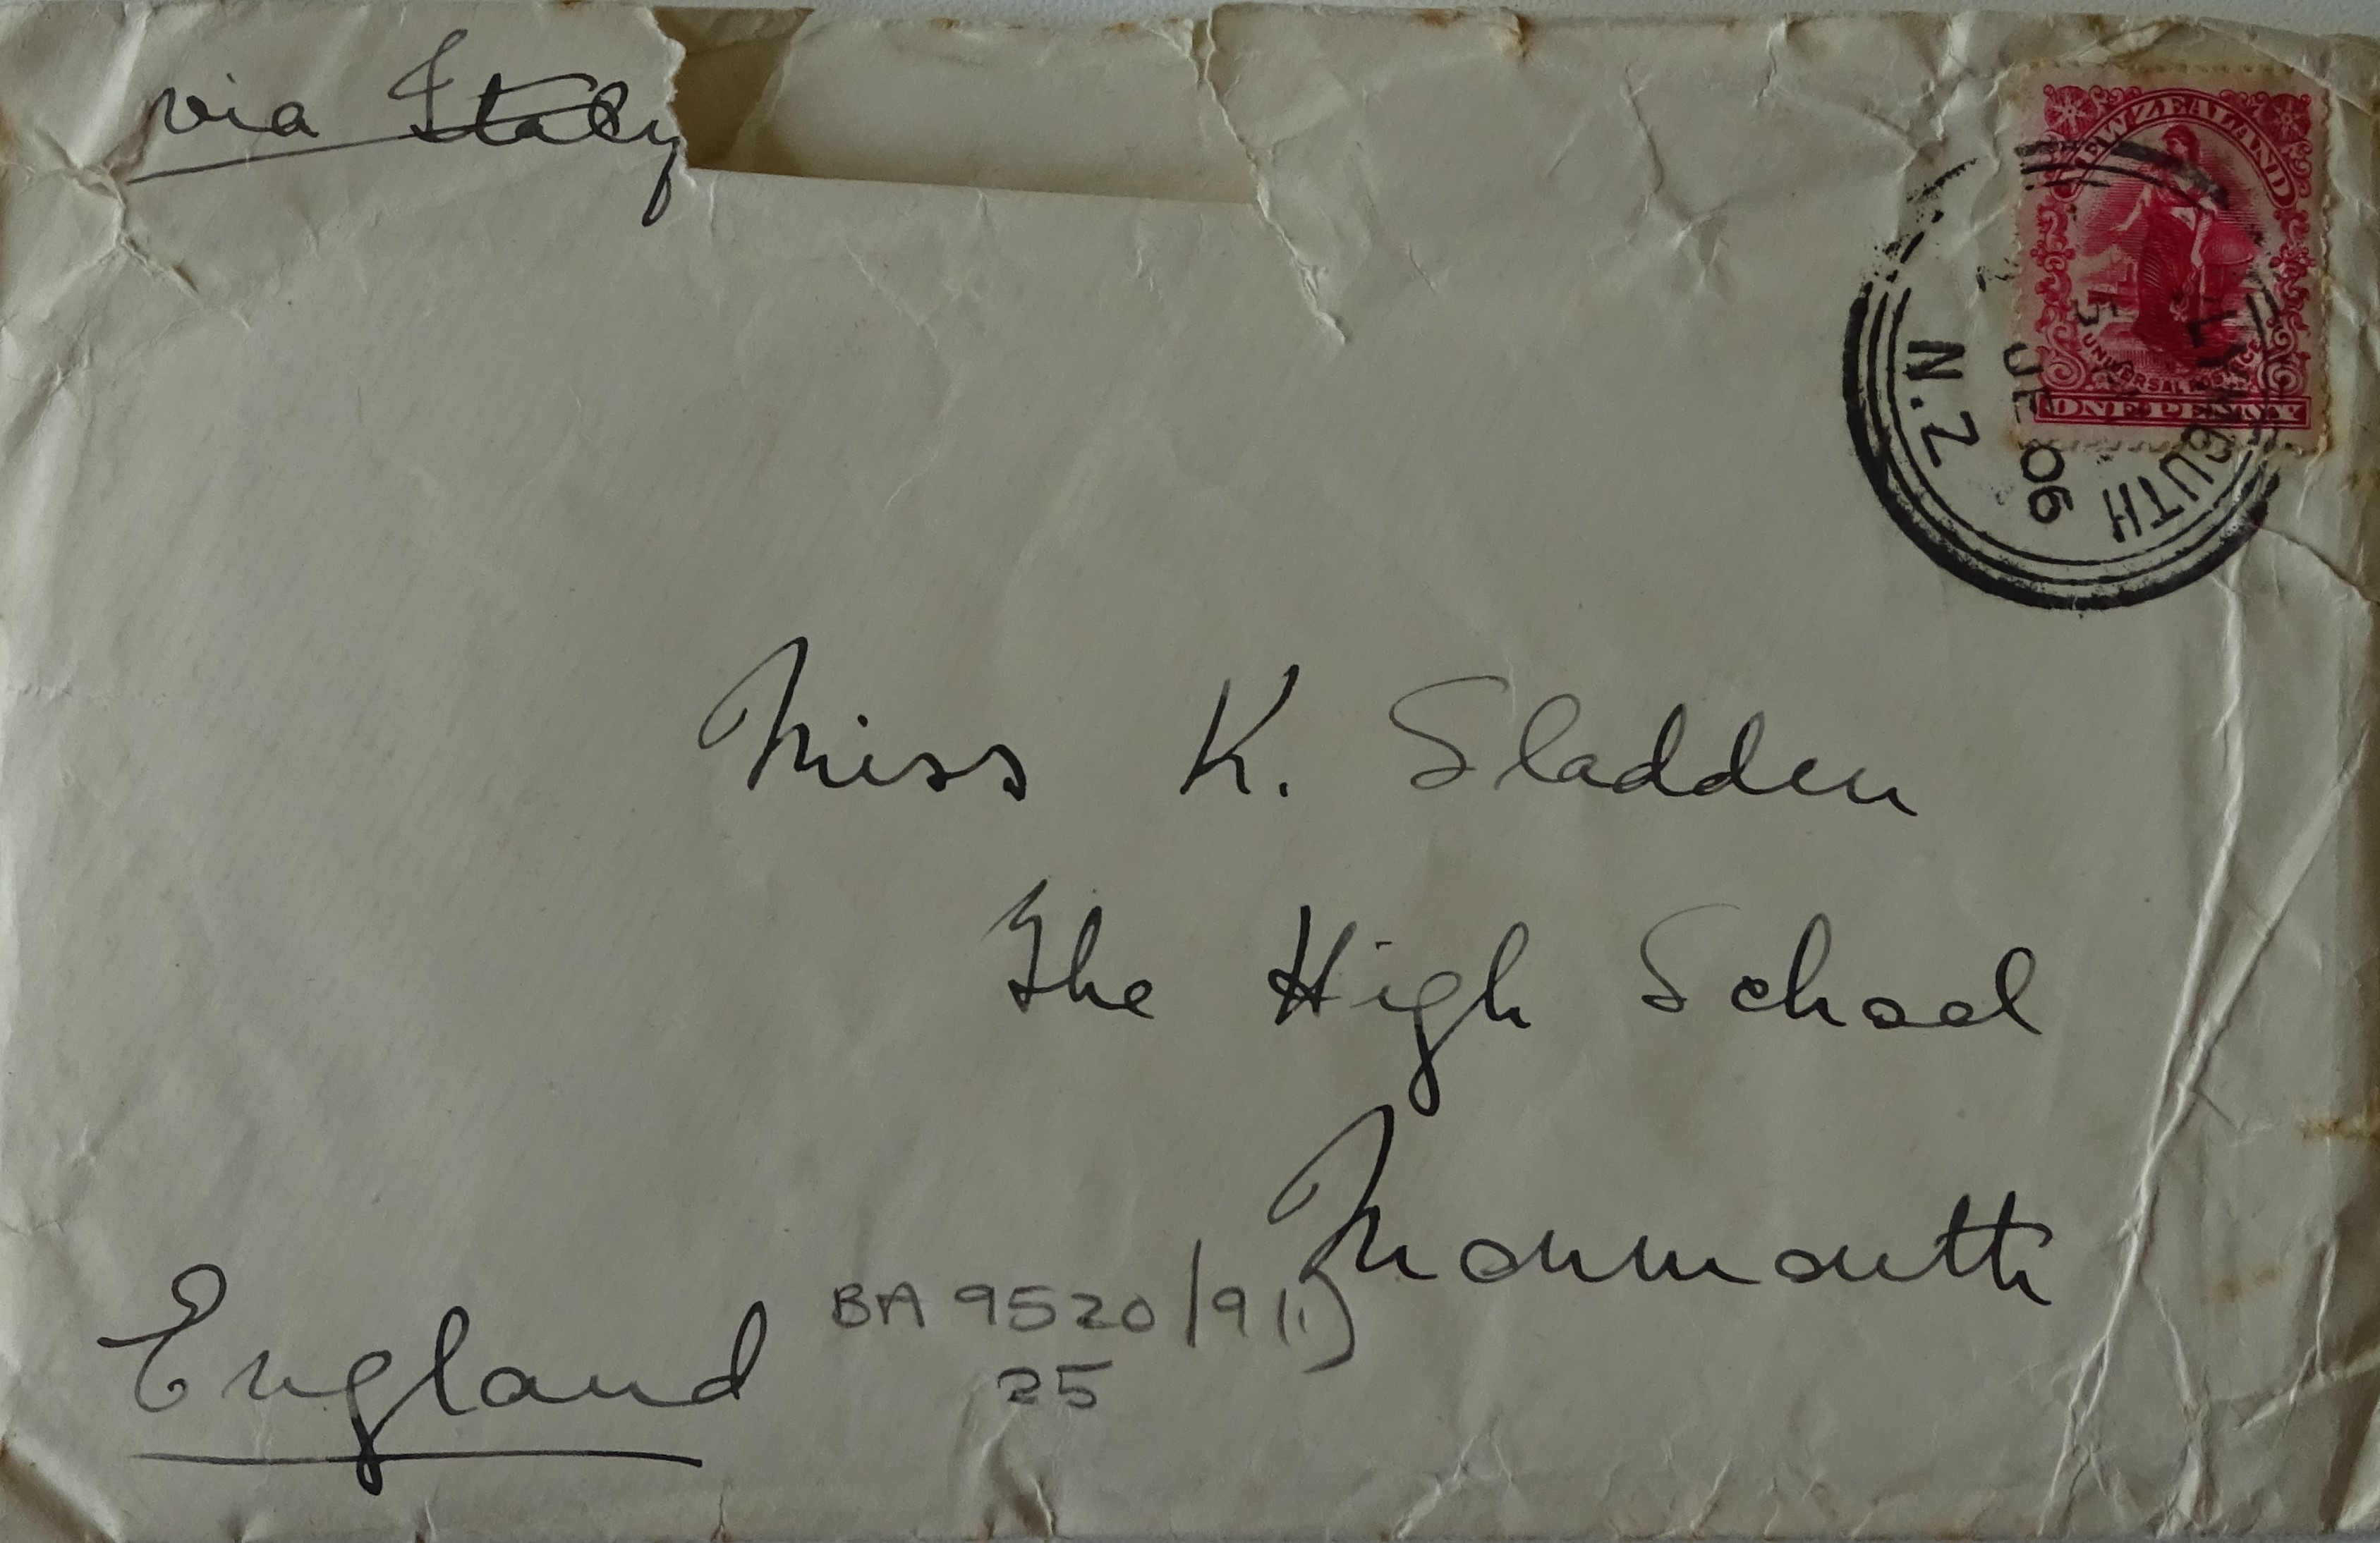 via Italy
NEW ZEALAND
UNIVERSAL POSTAGE
ONE PENNY
N.Z
JE 06
Miss K. Sladden
The High School
Monmouth
England
BA 9520/9(1)
25